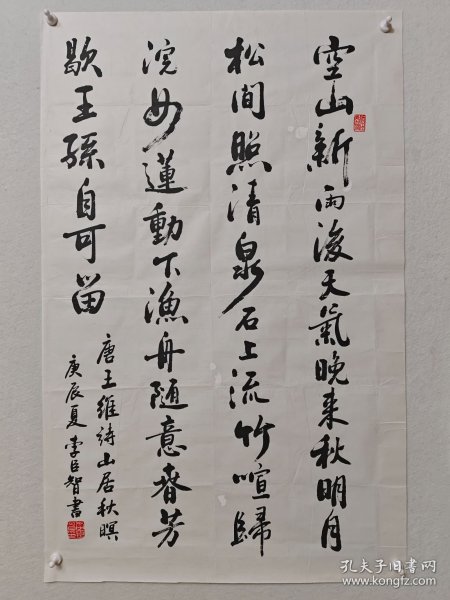 空山新雨後天氣晚来秋明月
松間照清泉石上流竹喧歸
浣女蓮動下漁舟随意春芳
歇王孫自可留
唐王維詩山居秋暝
庚辰夏李臣智書
孔夫子旧书网
www.kongfz.com